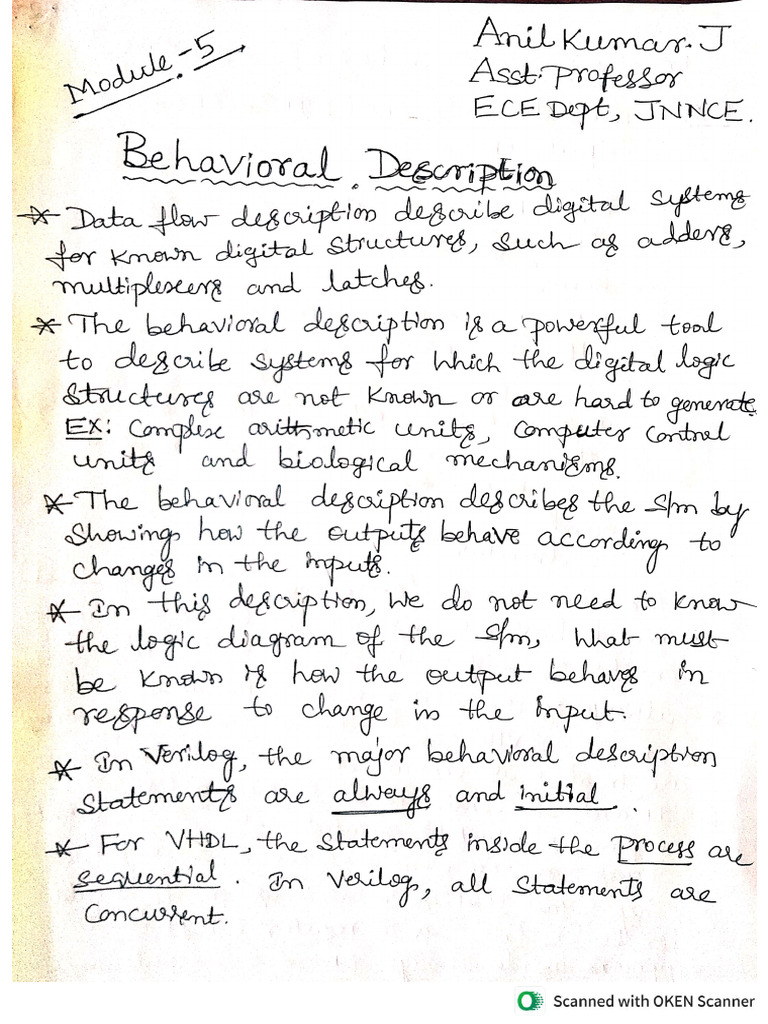 Module-5
Anil Kumar. J
Asst. Professor
ECE Dept, JNNCE.
Behavioral Description
* Data flow description describe digital systems
for known digital structures, such as adders,
multiplexers and latches.
* The behavioral description is a powerful tool
to describe systems for which the digital logic
structures are not known or are hard to generate.
EX: Complex arithmetic units, computer control
units and biological mechanisms.
* The behavioral description describes the S/m by
showing how the outputs behave according to
changes in the inputs.
* In this description, we do not need to know
the logic diagram of the S/m, what must
be known is how the output behaves in
response to change in the input.
* In Verilog, the major behavioral description
statements are always and initial.
* For VHDL, the statements inside the process are
sequential. In Verilog, all statements are
concurrent.
Scanned with OKEN Scanner